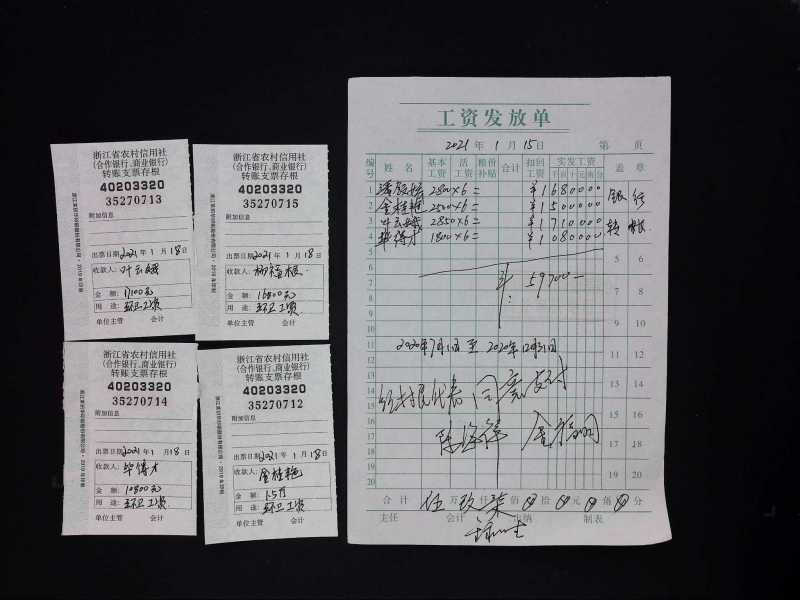 浙江省农村信用社
(合作银行、商业银行)
转账支票存根
40203320
35270713
附加信息
出票日期2021年1月18日
收款人:叶云娥
金额:17100元
用途:环卫工资
单位主管 会计
浙江省农村信用社
(合作银行、商业银行)
转账支票存根
40203320
35270715
附加信息
出票日期2021年1月18日
收款人:
金额:16800元
用途:环卫工资
单位主管 会计
浙江省农村信用社
(合作银行、商业银行)
转账支票存根
40203320
35270714
附加信息
出票日期2021年1月18日
收款人:毕得才
金额:10800元
用途:环卫工资
单位主管 会计
浙江省农村信用社
(合作银行、商业银行)
转账支票存根
40203320
35270712
附加信息
出票日期2021年1月18日
收款人:金桂艳
金额:1.5万
用途:环卫工资
单位主管 会计
工资发放单
2021年1月15日 第 页
编号 姓名 基本工资 活工资 粮价补贴 合计 扣回工资 实发工资 盖章
千百十元角分
1 2800×6= ¥1680000 银行
2 金桂艳 2500×6= ¥1500000
3 叶云娥 2850×6= ¥1710000 转帐
4 毕得才 1800×6= ¥1080000
5 5 6
6
7 ¥:59700— 7 8
8
9 9 10
10
11 2020年7月1日至2020年12月31日 11 12
12
13 13 14
14 经村民代表同意支付
15 15 16
16
17 17 18
18
19 19 20
20
合计 伍万玖仟柒佰⊗拾⊗元⊗角⊗分
主任 会计 出纳 制表